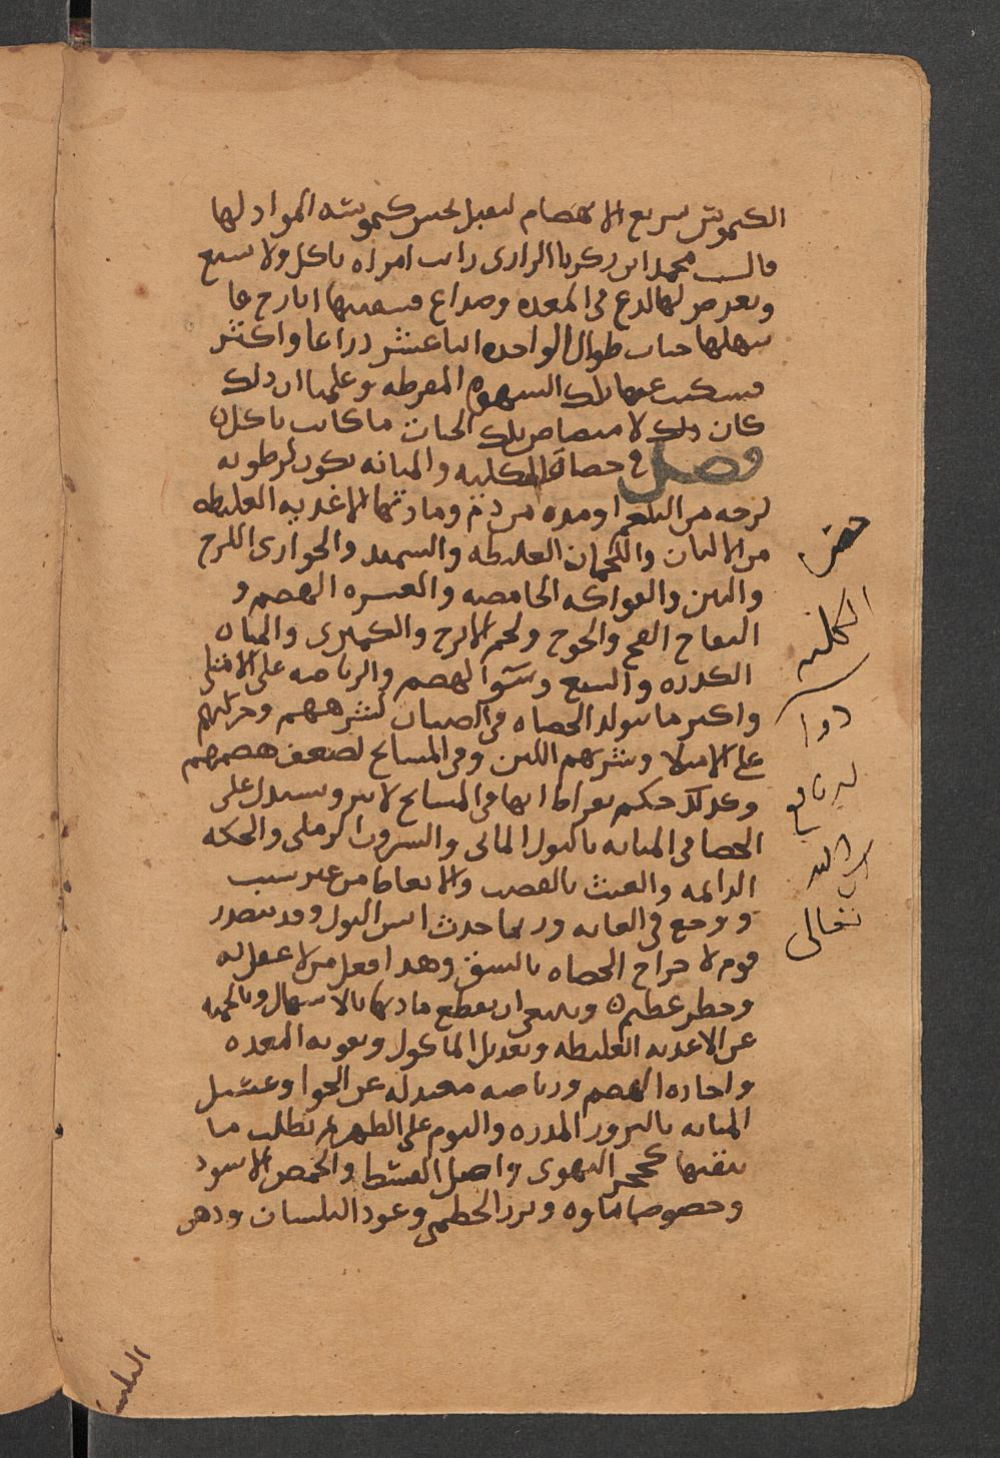 الكيموس سريع الانهضام ليقبل لحس كيموسه المواد لها
قال محمد ابن زكريا الرازى رايت امراه تاكل ولا تشبع
ويعرض لها لدع فى المعده وصداع فسقيتها ايارج ما
سهلها حيات طوال الواحده اثنا عشر ذراعا واكثر
فسكنت عنها تلك الشهوه المفرطه وعلمنا ان ذلك
كان ذلك لامتصاص تلك الحيات ما كانت تاكل
فصل فى حصاة الكليه والمثانه تكون لرطوبه
لزجه من البلغم او مده من دم ومادتها الاغذيه الغليظه
من الالبان واللحمان الغليظه والسميد والحوارى اللزج
والتين والفواكه الحامضه والعسره الهضم و
التفاح الفج والخوخ ولحم الاترج والكمثرى والمياه
الكدره والشبع وسوا لهضم والرياضه على الامتلى
واكثر ما تتولد الحصاه فى الصبيان لشرههم وحركتهم
على الامتلا وشربهم اللبن وفى المشايخ لضعف هضمهم
وكذلك حكم بقراط انها فى المشايخ لاتبرو ويستدل على
الحصا فى المثانه بالبول المائى والرسوب الرملى والحكه
الدايمه والعبث بالقضيب والانعاظ من غير سبب
ووجع فى العانه وربما حدث اسر البول وقد يتصدر
قوم لاخراج الحصاه بالشق وهذا فعل من لا عقل له
وخطر عظيم وينبغى ان يقطع مادتها بالاسهال وبالحميه
عن الاغذيه الغليظه وتعديل الماكول وتقويه المعده
واجاده الهضم ورياضه معتدله على الخوا وغسل
المثانه بالبزور المدره والنوم على الظهر ثم تطلب ما
يفتتها كحجر اليهودى واصل القسط والحمص الاسود
وخصوصا ماوه وبزر الخطمى وعود البلسان ودهن
حصى
الكليه
دوا
نافع
ان شا الله
تعالى
البلسان